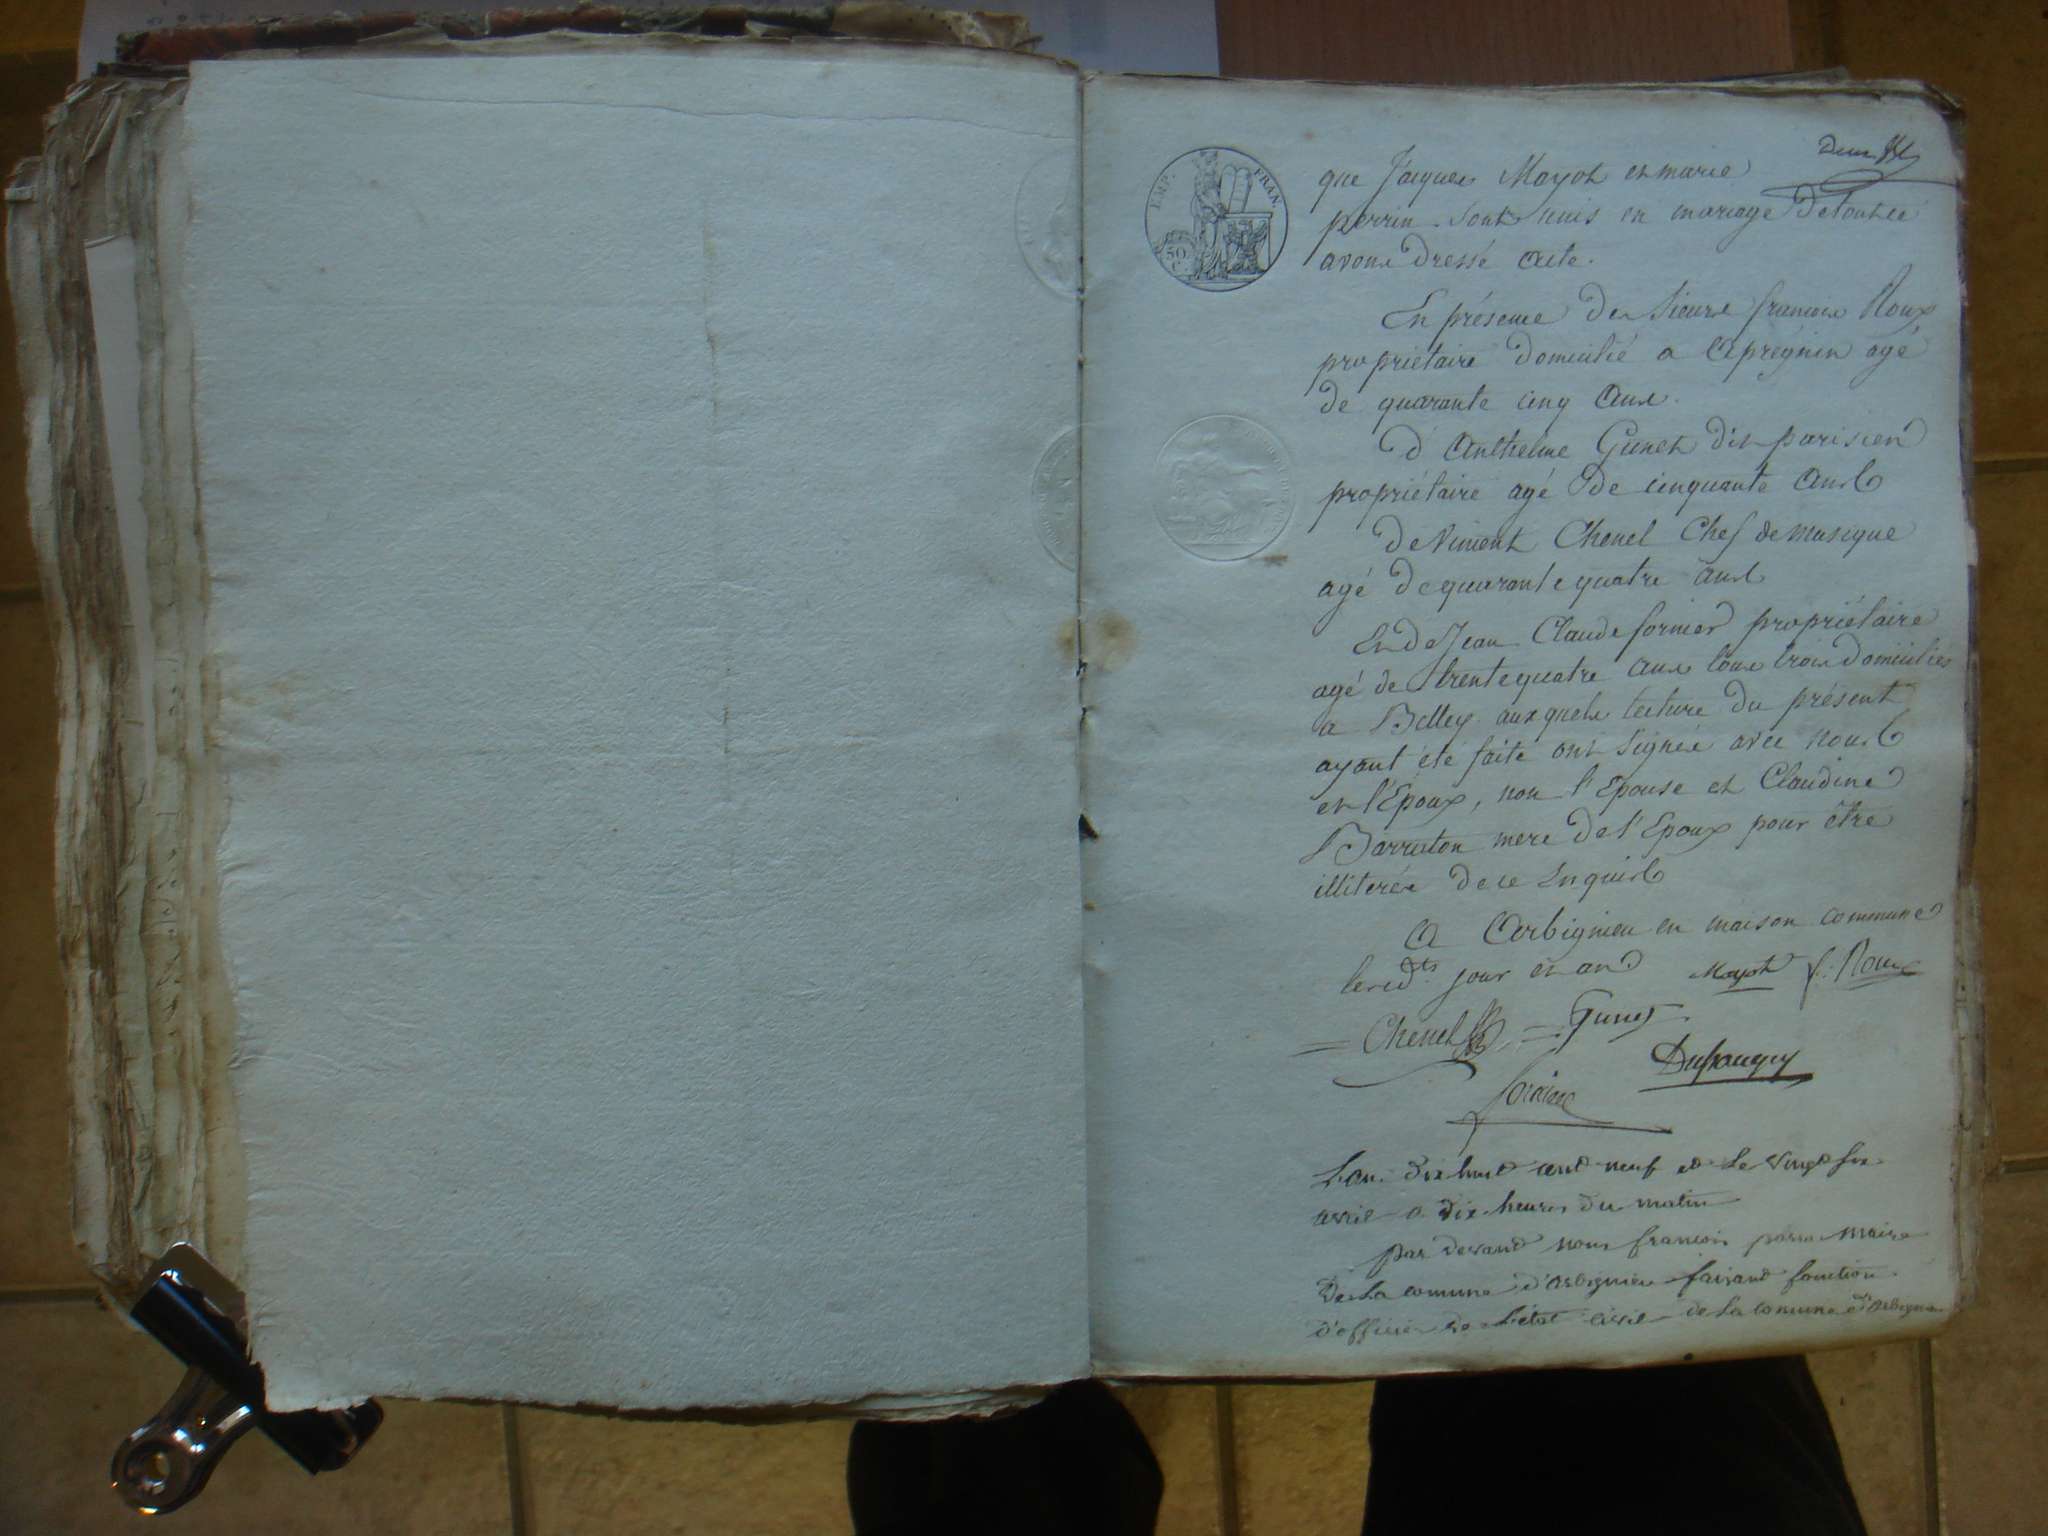 EMP. FRAN.
50 C.
Deux
que Jacques Mayot et marie
perrin sont unis en mariage De tout ce
avons Dressé acte.
En présence De Sieurs françois Roux
propriétaire Domicilié a apregnin agé
De quarante cinq ans.
D'anthelme Gunet dit parisien
propriétaire agé De cinquante ans
De Vincent Chenel Chef de musique
agé De quarante quatre ans
Et De Jean Claude fornier propriétaire
agé de trente quatre ans tous trois Domiciliés
a Belley auxquels lecture Du présent
ayant été faite ont signés avec nous
et l'Epoux, non l'Epouse et Claudine
Barruton mere De l'Epoux pour être
illiterés De ce Enquis
A Arbignieu en maison commune
les dts jour et an Mayot f. Roux
Chenel Gunet
l'an dix huit cent neuf et le vingt six
avril a dix heures du matin
par devant nous francois parra maire
De la comune d'arbignieu faisant fonction
d'officier de l'état civil de la comune d'arbignieu